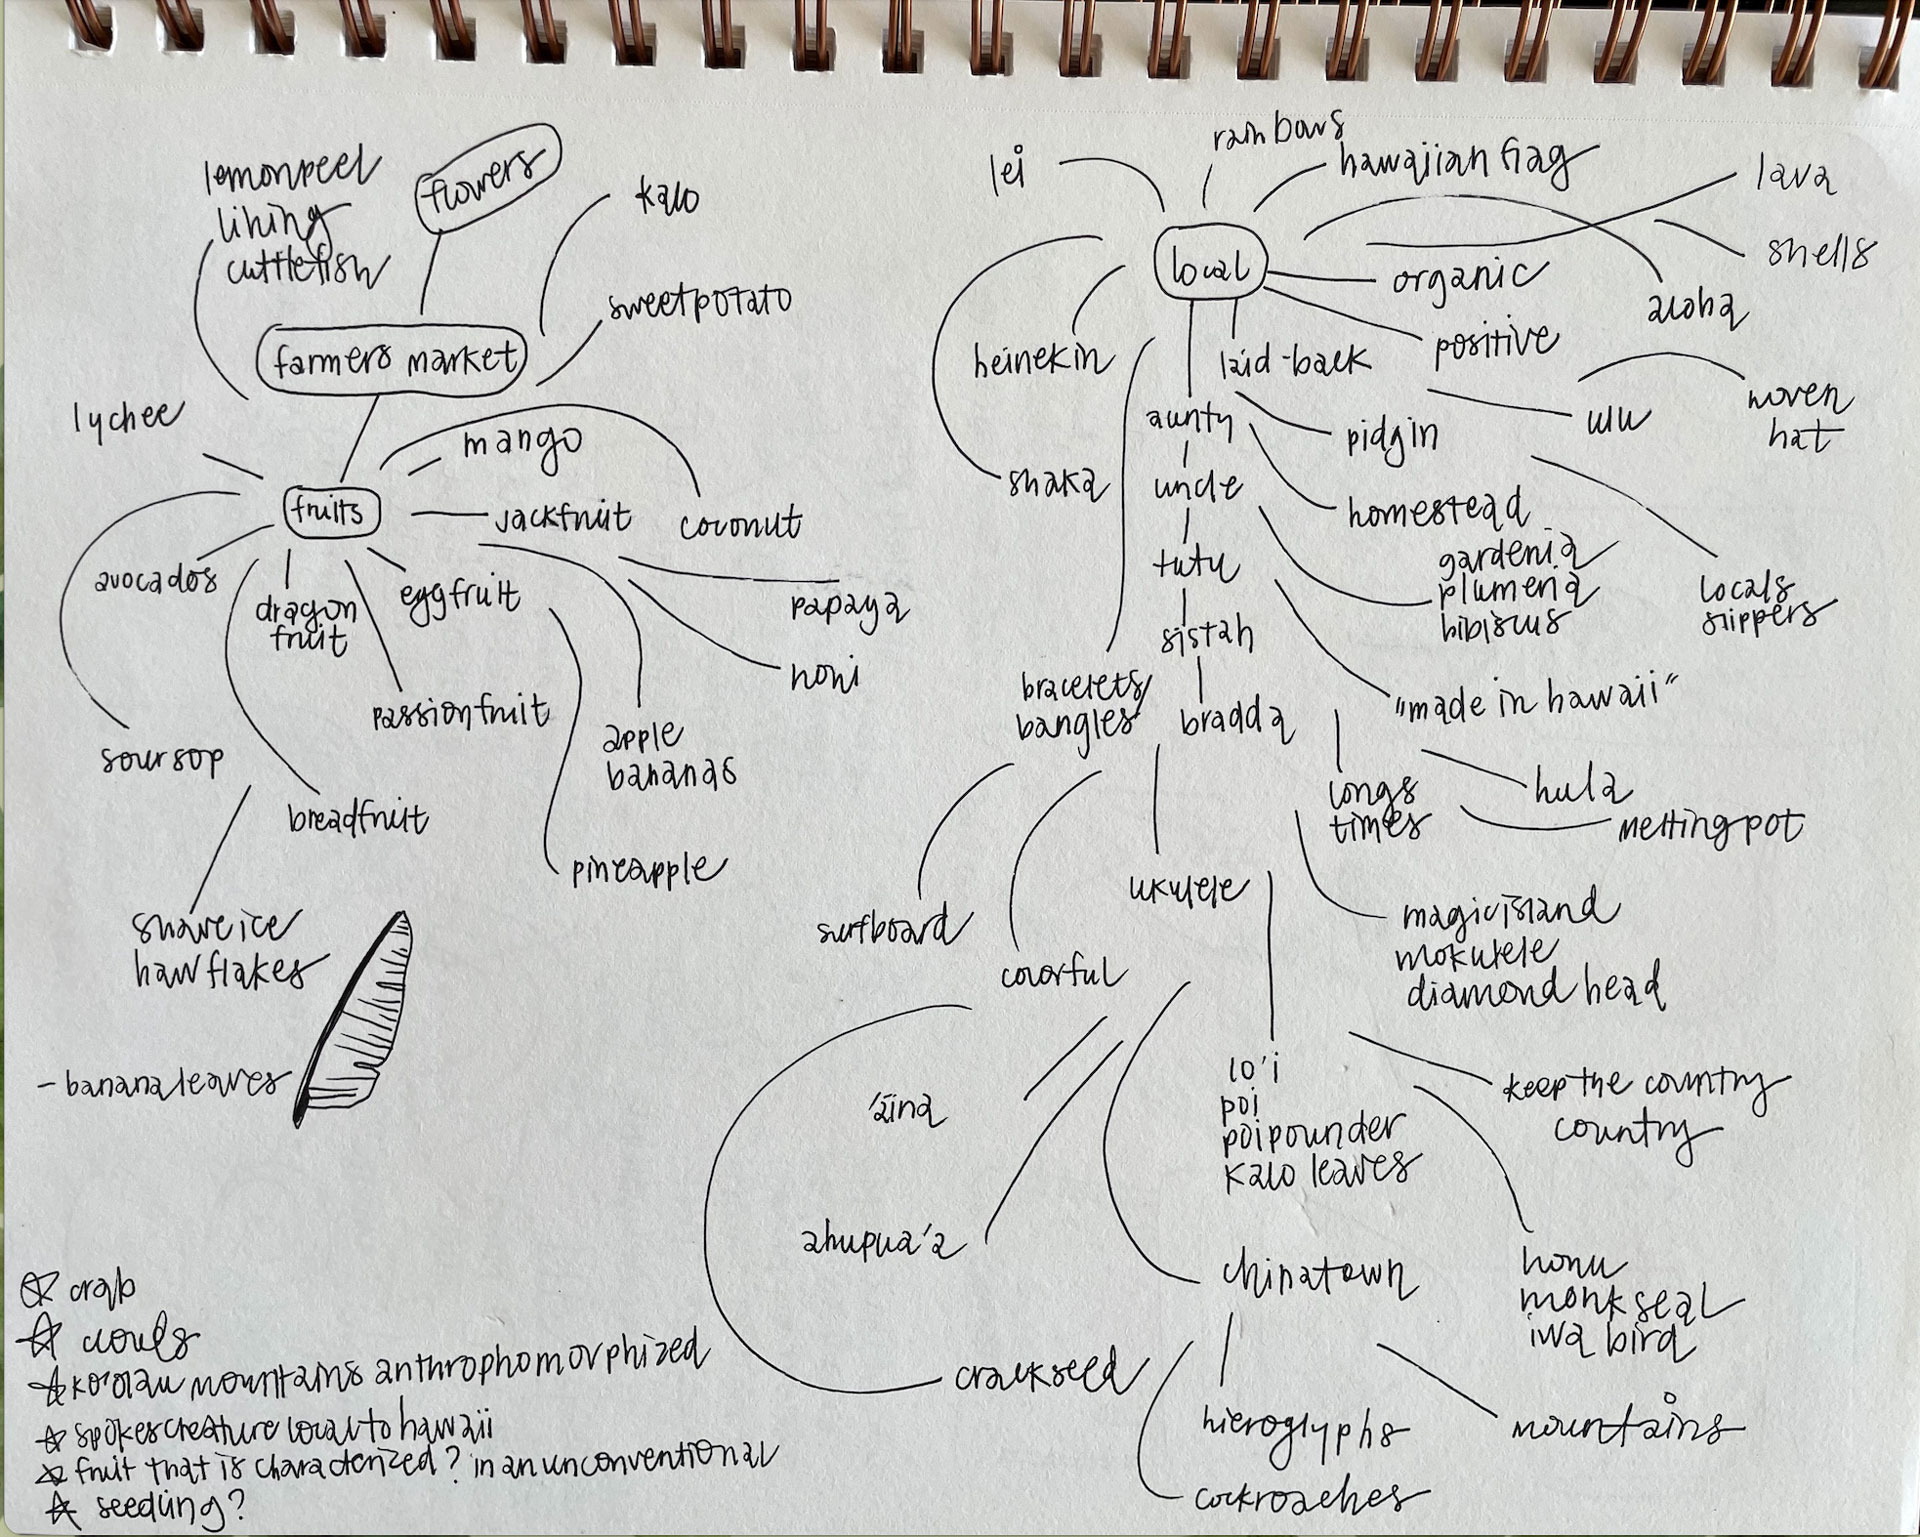 lemonpeel
lihing
cuttlefish
flowers
kalo
sweetpotato
farmers market
lychee
mango
fruits
jackfruit
coconut
avocados
dragon
fruit
eggfruit
papaya
noni
passionfruit
apple
bananas
soursop
breadfruit
pineapple
shave ice
haw flakes
-banana leaves
lei
rainbows
hawaiian flag
lava
shells
local
organic
aloha
positive
heinekin
laid-back
ulu
woven
hat
aunty
pidgin
shaka
uncle
homestead
tutu
gardenia
plumeria
hibiscus
locals
slippers
sistah
bracelets/
bangles
bradda
"made in hawaii"
longs
times
hula
meltingpot
ukulele
surfboard
colorful
magicisland
mokulele
diamond head
'āina
lo'i
poi
poipounder
kalo leaves
keep the country
country
ahupua'a
chinatown
honu
monk seal
iwa bird
crackseed
hieroglyphs
mountains
cockroaches
☆ crab
☆ ko'olau mountains anthrophomorphized
☆ spokescreature local to hawaii
☆ fruit that is characterized? in an unconventional
☆ seedling?